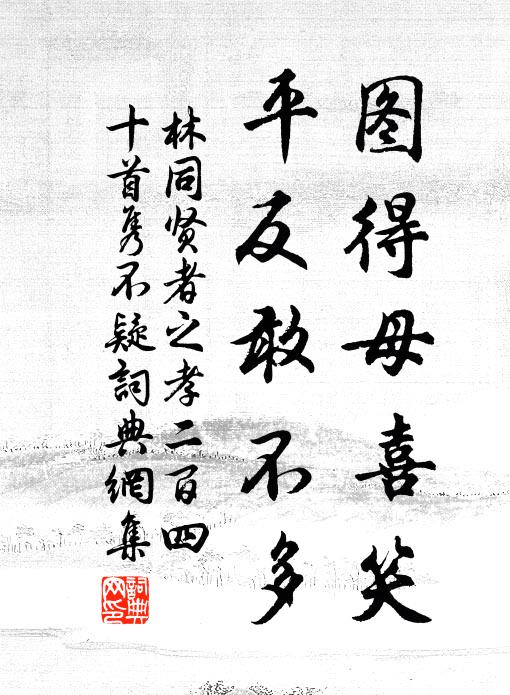 图得母喜笑
平反敢不多
林同贤者之孝二百四
十首隽不疑詞典網集
詞典网印